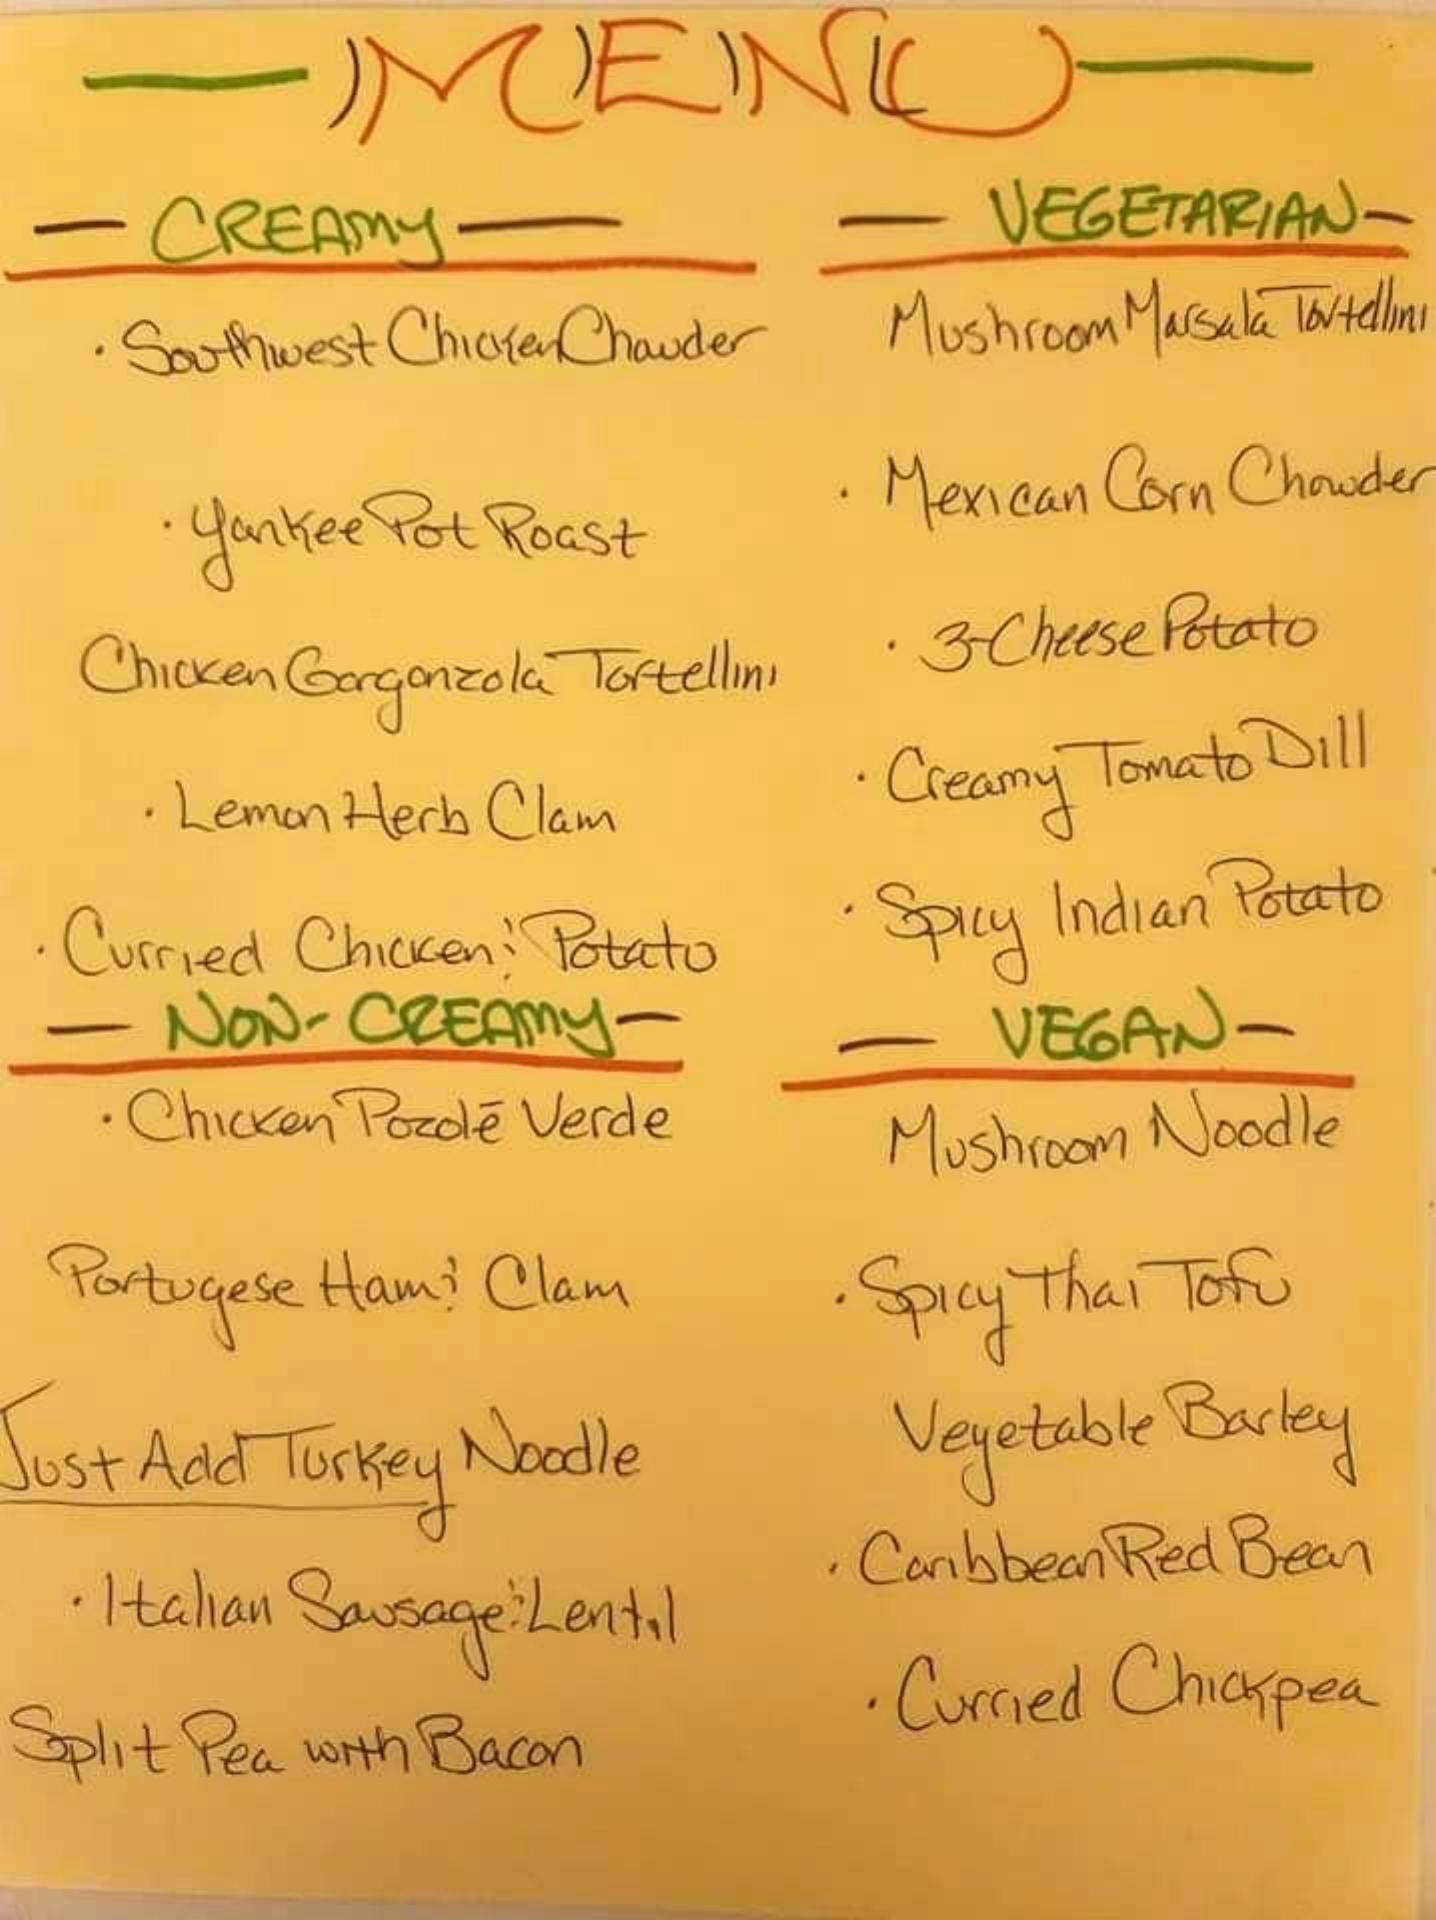 MENU
CREAMY
· Southwest Chicken Chowder
· Yankee Pot Roast
Chicken Gorgonzola Tortellini
· Lemon Herb Clam
· Curried Chicken & Potato
NON-CREAMY
· Chicken Pozolē Verde
Portugese Ham & Clam
Just Add Turkey Noodle
· Italian Sausage & Lentil
Split Pea with Bacon
VEGETARIAN
Mushroom Marsala Tortellini
· Mexican Corn Chowder
· 3-Cheese Potato
· Creamy Tomato Dill
· Spicy Indian Potato
VEGAN
Mushroom Noodle
· Spicy Thai Tofu
Vegetable Barley
· Caribbean Red Bean
· Curried Chickpea